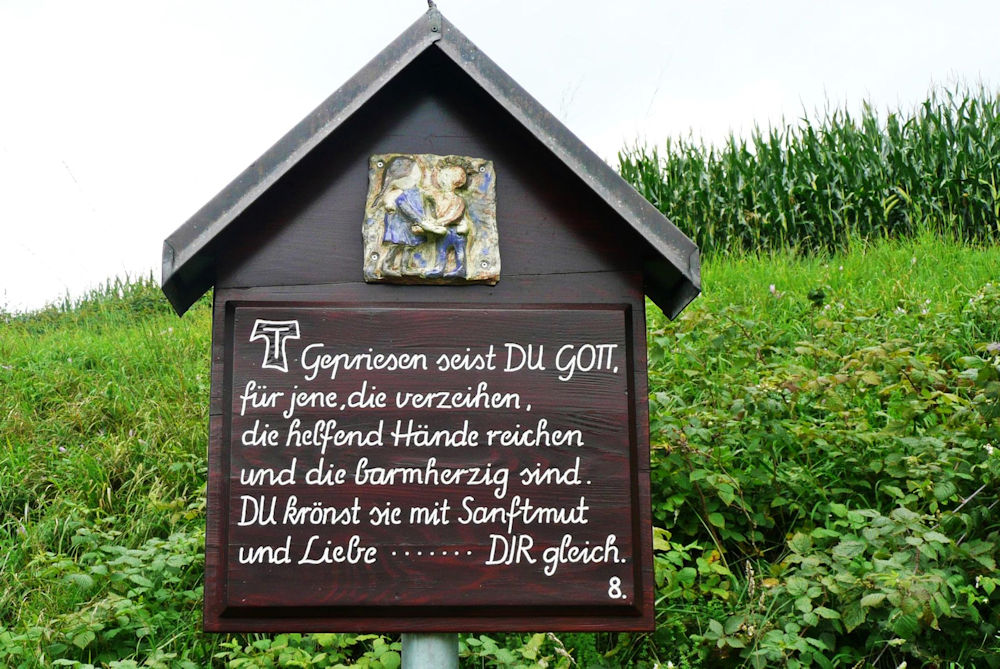 T Gepriesen seist DU GOTT,
für jene, die verzeihen,
die helfend Hände reichen
und die barmherzig sind.
DU krönst sie mit Sanftmut
und Liebe ....... DIR gleich.
8.